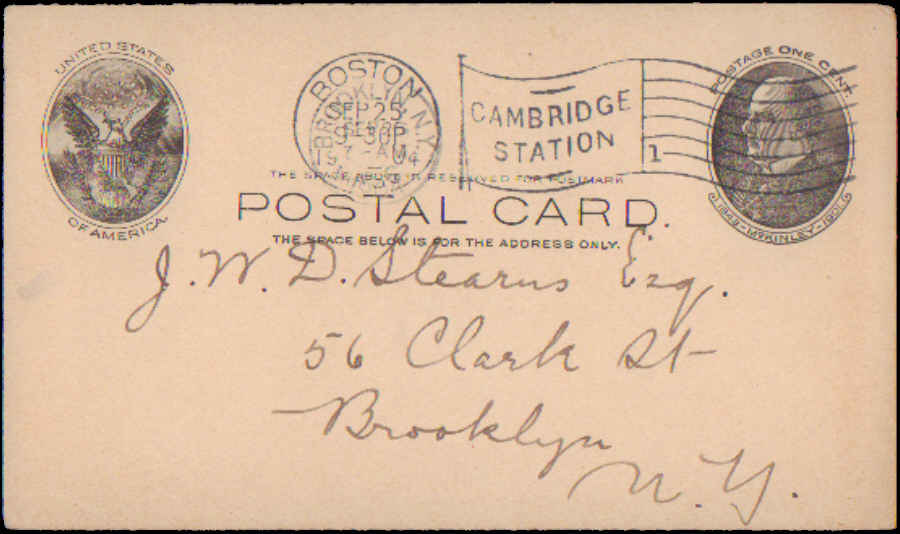 UNITED STATES
OF AMERICA.
BOSTON
SEP 25
19 04
BROOKLYN, N.Y.
CAMBRIDGE
STATION
1
POSTAGE ONE CENT.
McKINLEY
THE SPACE ABOVE IS RESERVED FOR POSTMARK
POSTAL CARD.
THE SPACE BELOW IS FOR THE ADDRESS ONLY.
J. W. D. Stearns Esq.
56 Clark St
Brooklyn
N. Y.